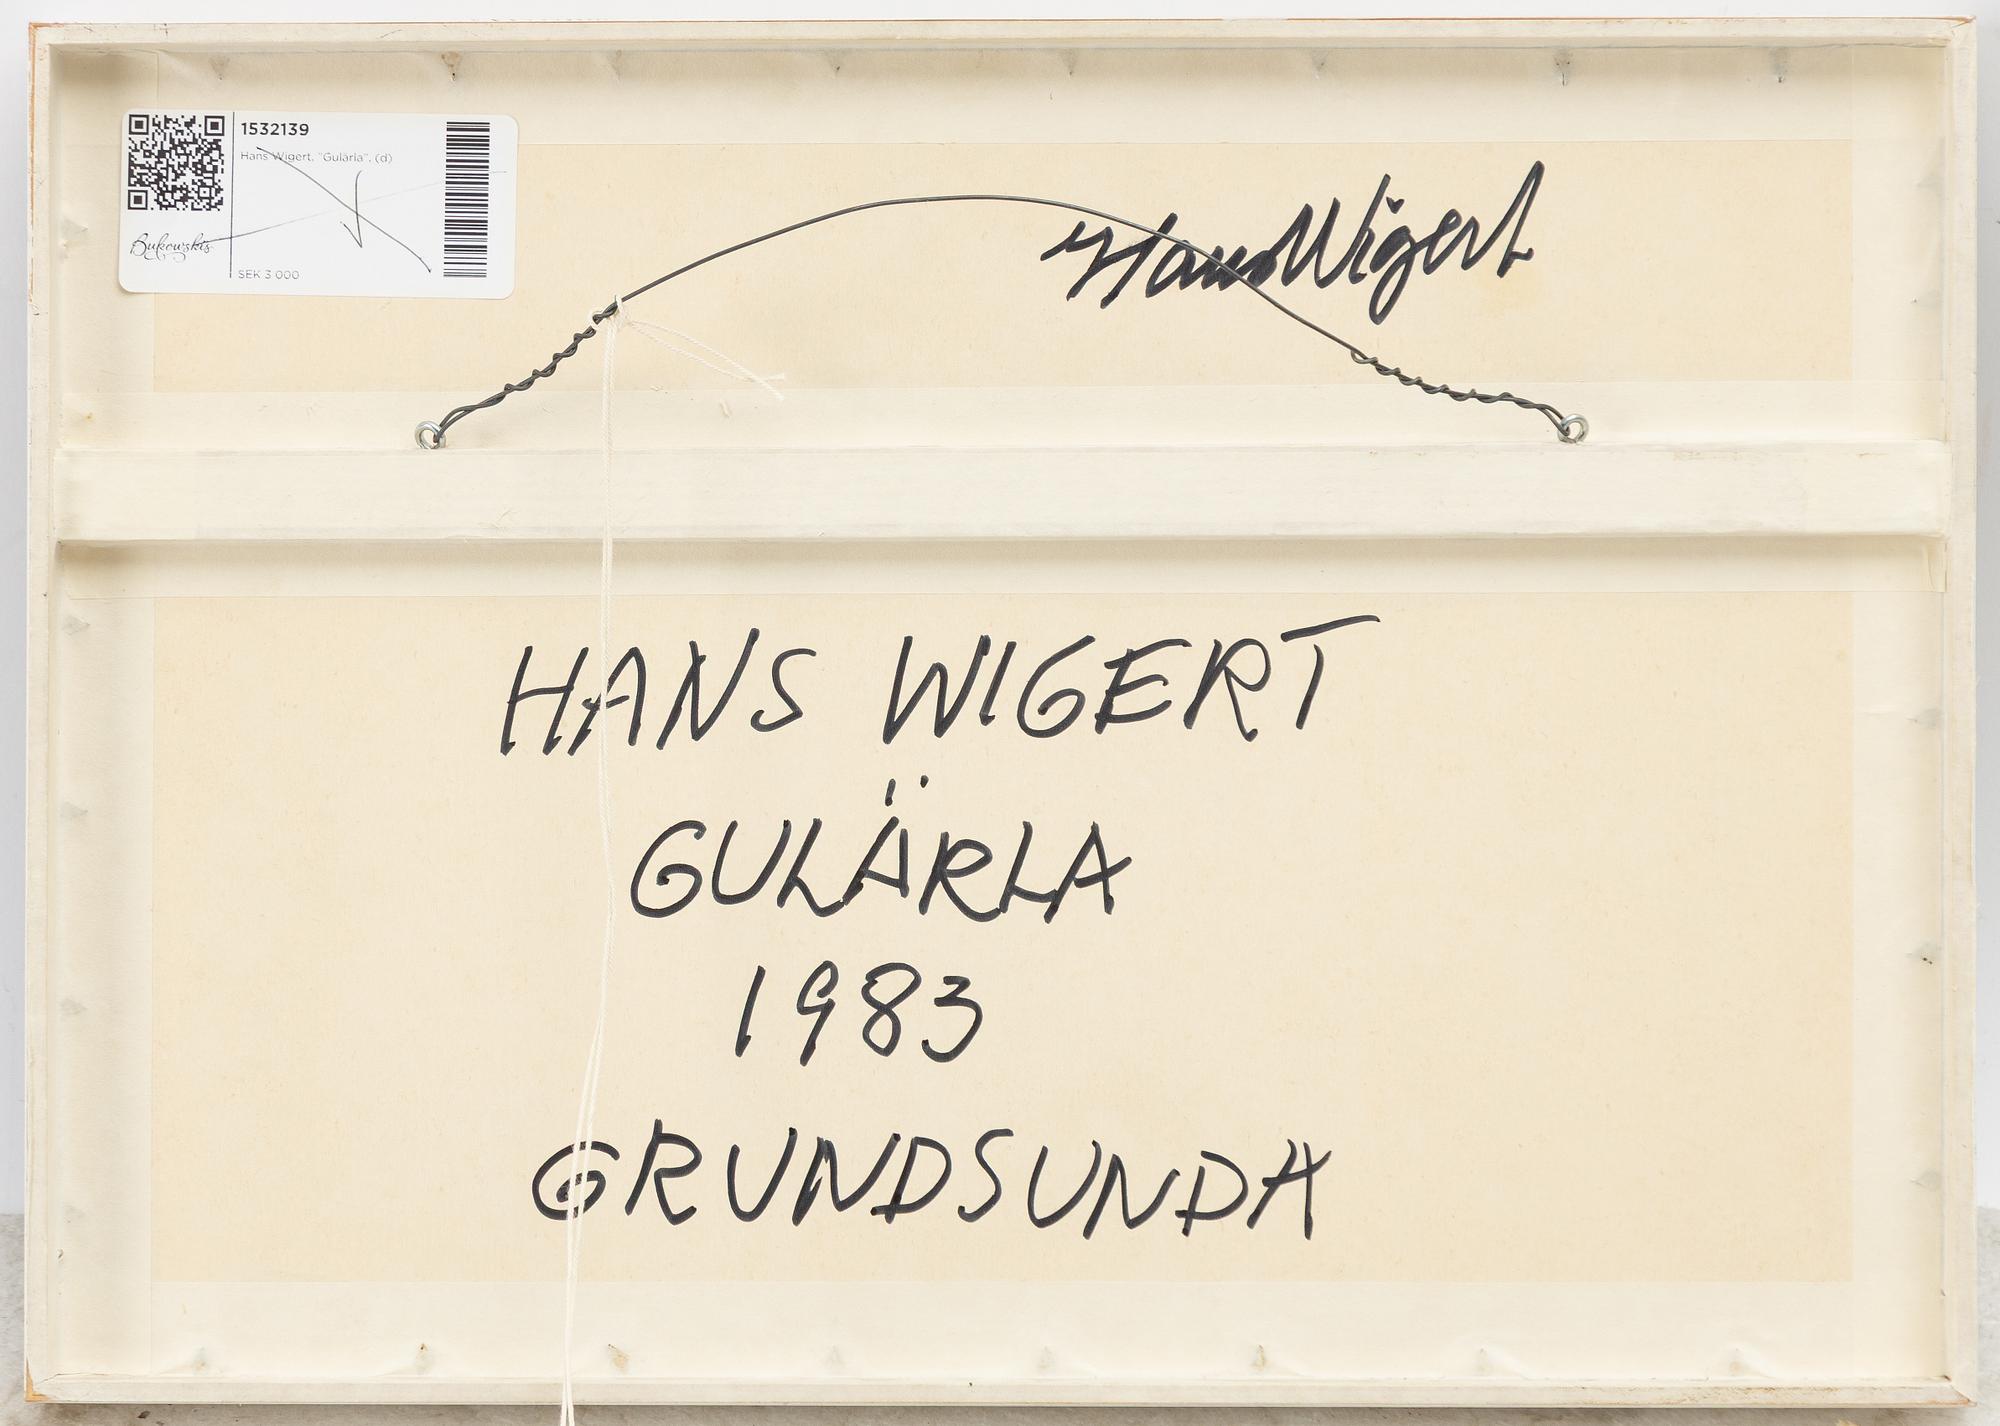 1532139
Hans Wigert, "Gulärla", (d)
Bukowskis
SEK 3 000
Hans Wigert
HANS WIGERT
GULÄRLA
1983
GRUNDSUNDA